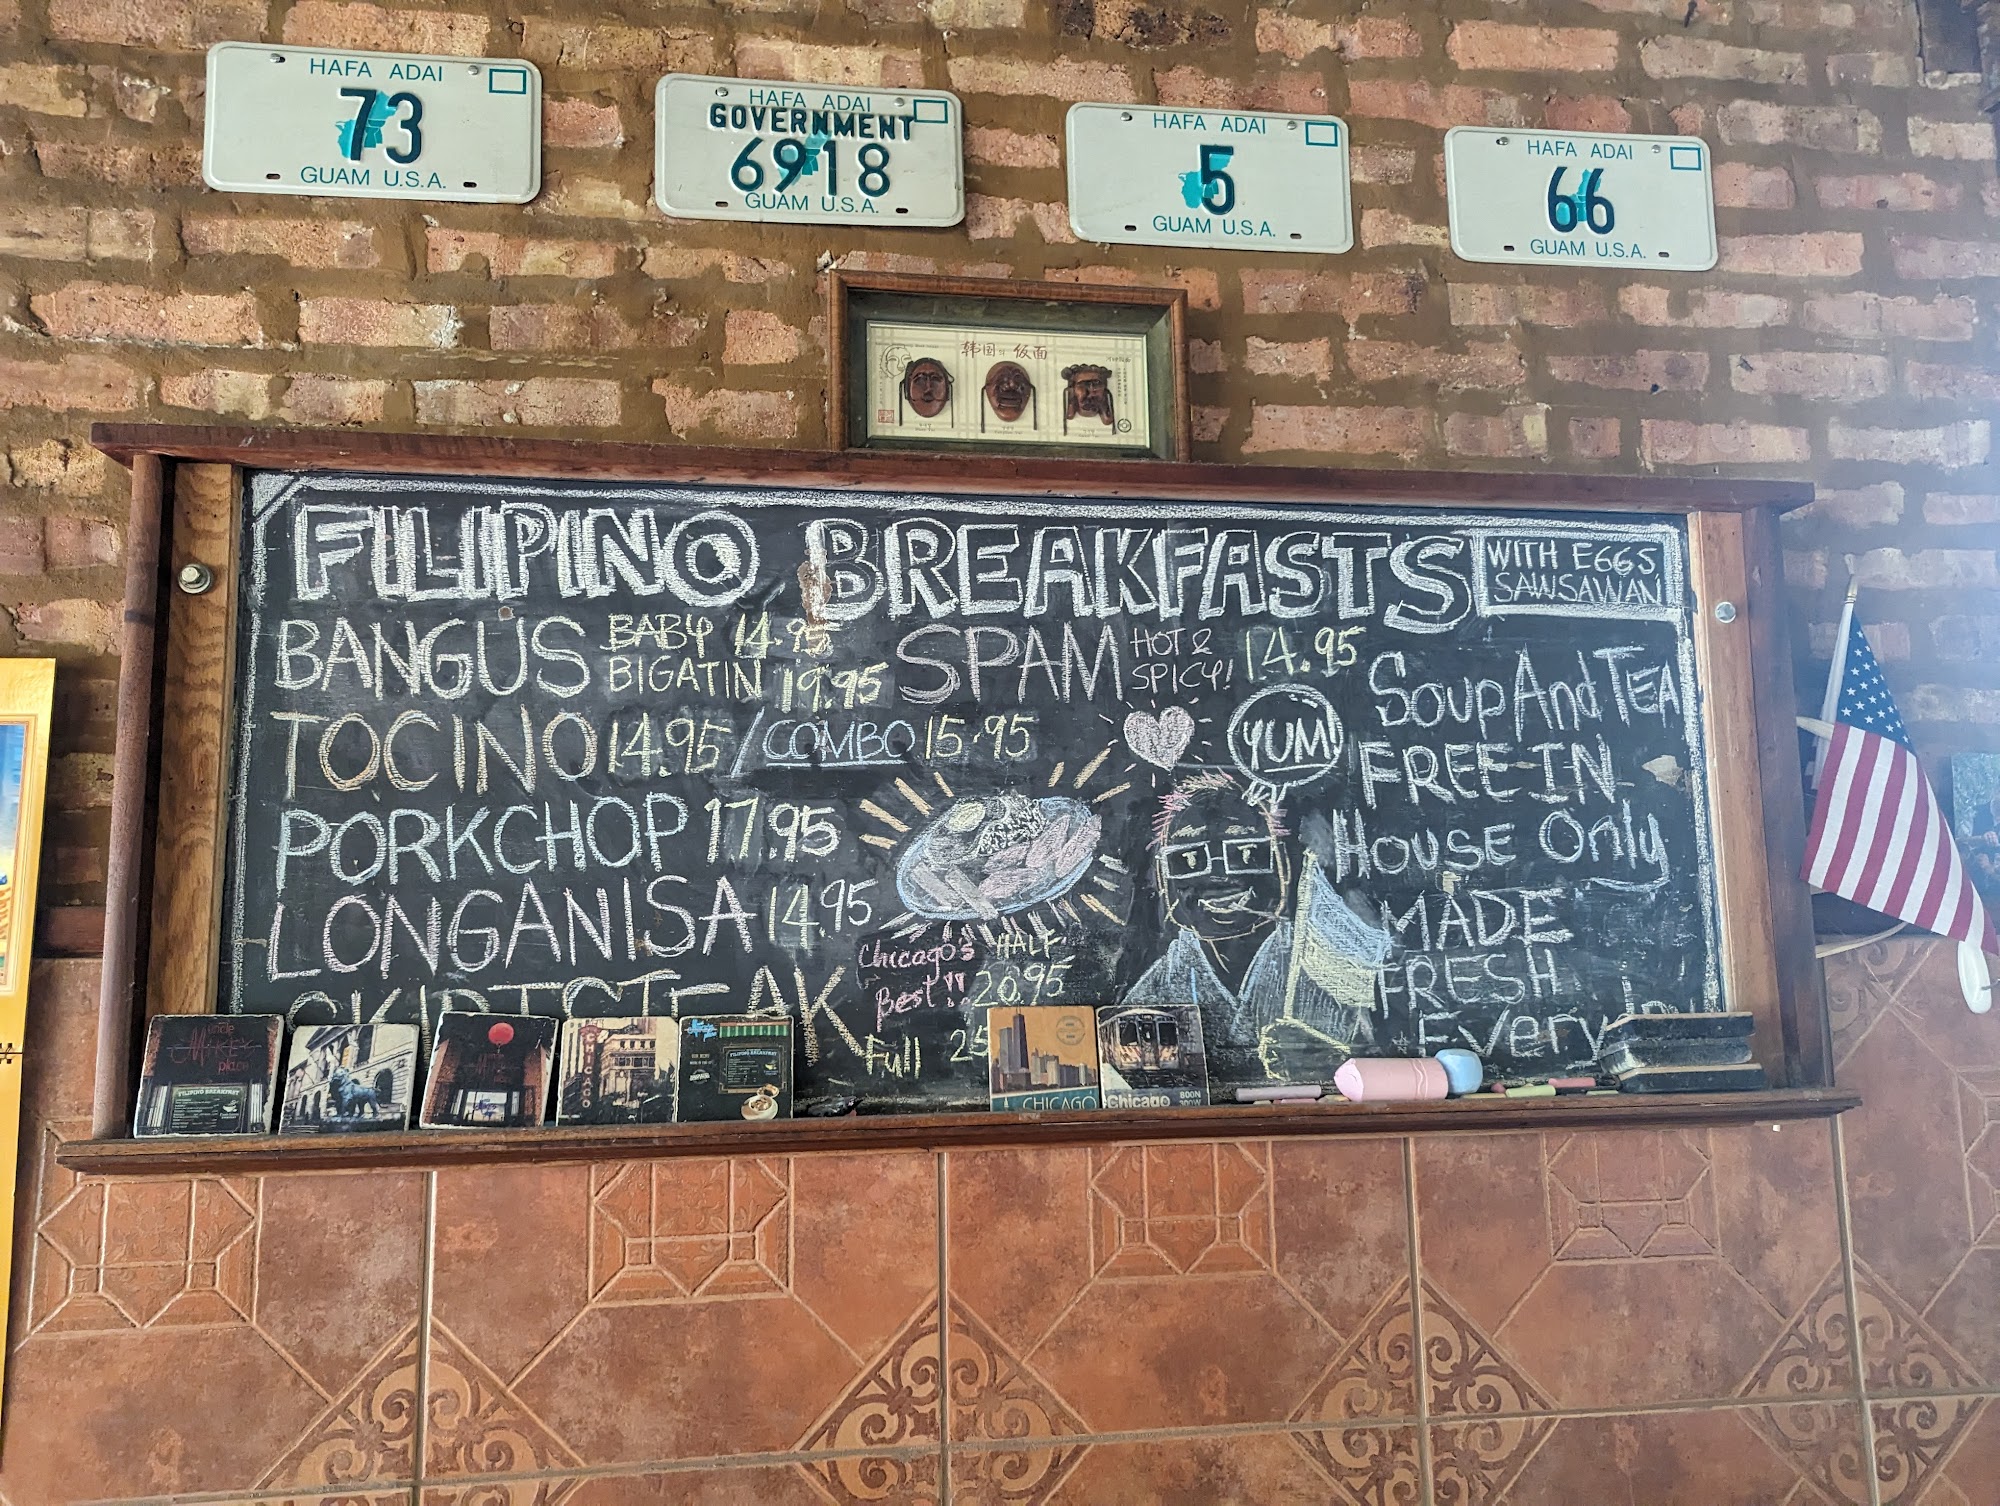 HAFA ADAI
73
GUAM U.S.A.
HAFA ADAI
GOVERNMENT
6918
GUAM U.S.A.
HAFA ADAI
5
GUAM U.S.A.
HAFA ADAI
66
GUAM U.S.A.
FILIPINO BREAKFASTS
WITH EGGS
SAWSAWAN
BANGUS BABY 14.95
BIGATIN 19.95
SPAM HOT &
SPICY! 14.95
TOCINO 14.95 / COMBO 15.95
PORKCHOP 17.95
LONGANISA 14.95
SKIRTSTEAK
Chicago's
Best!!
HALF
20.95
Full 25
YUM!
Soup And TEA
FREE IN
HOUSE Only
MADE
FRESH
Every
uncle
Mike's
place
FILIPINO BREAKFAST
CHICAGO
FILIPINO BREAKFAST
CHICAGO
Chicago 800N
300W